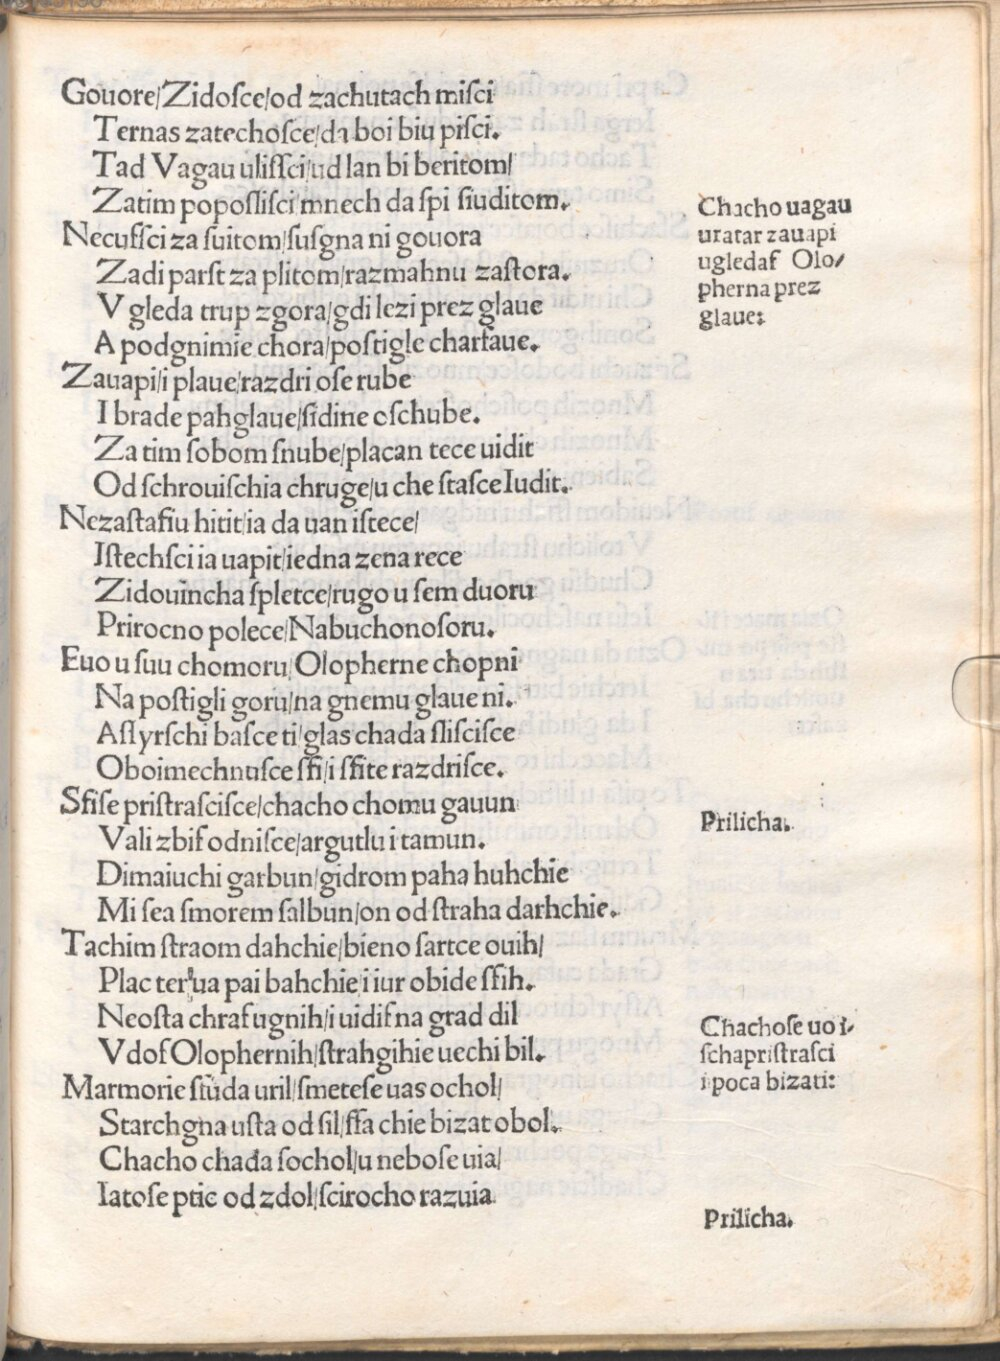 Gouore/Zidosce/od zachutach misci
Ternas zatechosce/da boi biu prsci.
Tad Vagau ulissci/ud lan bi beritom/
Zatim poposlisci/mnech da spi siuditom.
Necufsci za suitom/susgna ni gouora
Zadi parst za plitom/razmahnu zastora.
V gleda trup zgora/gdi lezi prez glaue
A podgnimie chora/postigle chartaue.
Zauapi/i plaue/razdri ose rube
I brade pahglaue/sidine oschube.
Za tim sobom snube/placan tece uidit
Od schrouischia chruge/u che stasce Iudit.
Nezastafiu hitit/ia da uan istece/
Istechsci ia uapit/iedna zena rece
Zidouincha spletce/rugo u sem duoru
Prirocno polece/Nabuchonosoru.
Euo u suu chomoru/Olopherne chopni
Na postigli goru/na gnemu glaue ni.
Assyrschi basce ti/glas chada sliscisce
Oboimechnusce ssi/i ssite razdrisce.
Sfise pristrascisce/chacho chomu gauun
Vali zbif odnisce/argutlu i tamun.
Dimaiuchi garbun/gidrom paha huhchie
Mi sea smorem salbun/on od straha darhchie.
Tachim straom dahchie/bieno sartce ouih/
Plac ter'ua pai bahchie/i iur obide ssih.
Neosta chraf ugnih/i uidif na grad dil
V dof Olophernih/strahgihie uechi bil.
Marmorie studa uril/smetese uas ochol/
Starchgna usta od sil/ssa chie bizat obol.
Chacho chada sochol/u nebose uia/
Iatose ptic od zdol/scirocho razuia.
Chacho uagau
uratar zauapi
ugledaf Olo/
pherna prez
glaue:
Prilicha.
Chachose uo i-
schapristrasci
i poca bizati:
Prilicha.